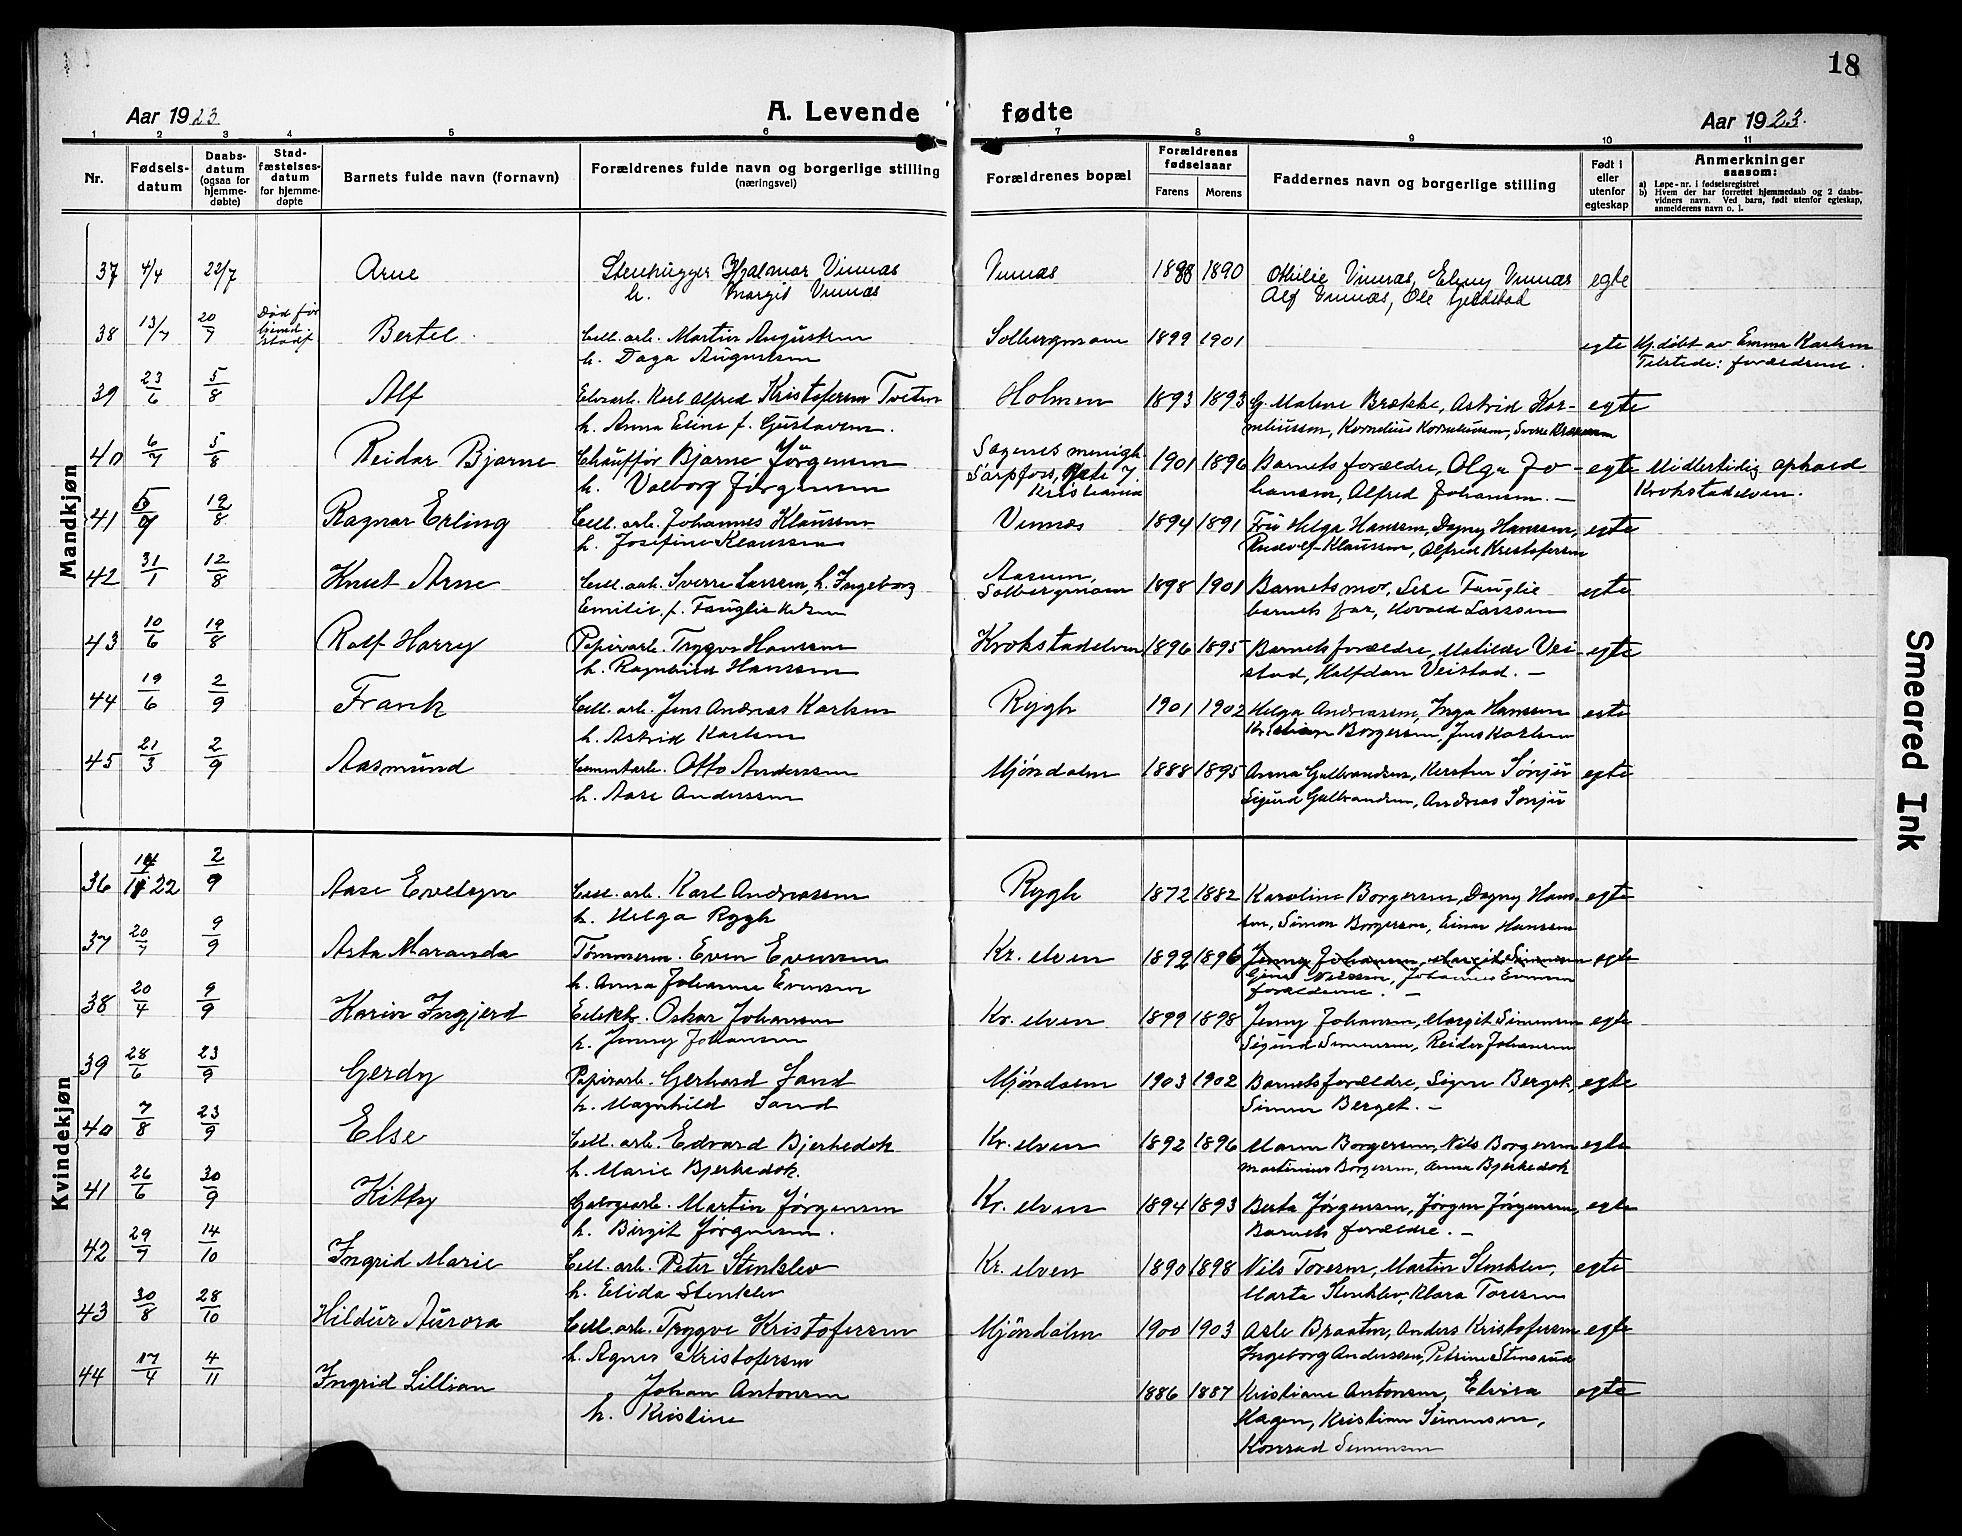 18
Aar 1923
A. Levende fødte
Aar 1923.
1 2 3 4 5 6 7 8 9 10 11
Nr.
Fødsels-
datum
Daabs-
datum
(ogsaa for
hjemme-
døbte)
Stad-
fæstelses-
datum
for hjemme-
døpte
Barnets fulde navn (fornavn)
Forældrenes fulde navn og borgerlige stilling
(næringsvei)
Forældrenes bopæl
Forældrenes
fødselsaar
Farens Morens
Faddernes navn og borgerlige stilling
Født i
eller
utenfor
egteskap
Anmerkninger
saasom:
a) Løpe-nr. i fødselsregistret
b) Hvem der har forrettet hjemmedaab og 2 daabs-
vidners navn. Ved barn, født utenfor egteskap,
anmelderens navn o. l.
Mandkjøn
37 4/4 22/7 Arne Stenhugger Hjalmar Vinnæs Vinnæs 1888 1890 Othilie Vinnæs, Elmy Vinnæs egte
h. Margit Vinnæs Alf Vinnæs, Ole Gjeldstad
38 13/7 20/7 Død før Bertel Cell. arb. Martin Augustsen Solbergmoen 1899 1901 egte Hj. døbt av Emma Karlsen
h. Daga Augustsen Tilstede: forældrene.
39 23/6 5/8 Alf Elvearb. Karl Alfred Kristofersen Tveten Holmen 1893 1893 G. Malene Brække, Astrid Kor- egte
h. Anna Eline f. Gustavsen. neliussen, Kornelius Korneliussen, Sverre
40 6/7 5/8 Reidar Bjarne Chauffør Bjarne Jörgensen Sagenes menigh. 1901 1896 Barnets forældre, Olga Jo- egte Midlertidig ophold
h. Valborg Jörgensen Sarpfoss gate 7. Kristiania hansen, Alfred Johansen. — Krokstadelven.
41 5/7 12/8 Ragnar Erling Cell. arb. Johannes Klaussen Vinnæs 1894 1891 Fru Helga Hanssen, Dagny Hanssen, egte
h. Josefine Klaussen Rudolf Klaussen, Alfred Kristofersen
42 31/1 12/8 Knut Arne Cell. arb. Sverre Larssen, h. Ingeborg Aasum, Solbergmoen 1898 1901 Barnets mor, Lise Fauglie egte
Emilie, f. Fauglie barnets far, Hovald Larssen
43 10/6 19/8 Rolf Harry Papirarb. Trygve Hanssen Krokstadelven 1896 1895 Barnets forældre, Matilde Vei- egte
h. Ragnhild Hanssen stad, Halfdan Veistad. —
44 19/6 2/9 Frank Cell. arb. Jens Andreas Karlsen Rygh 1901 1902 Helga Andreassen, Inga Hanssen egte
h. Astrid Karlsen Kristian Borgersen, Jens Karlsen
45 21/3 2/9 Aasmund Cementarb. Otto Anderssen Mjöndalen 1888 1895 Anna Gulbrandsen, Kersten Sönju egte
h. Aase Anderssen Sigurd Gulbrandsen, Andreas Sönju
Kvindekjøn
36 14/11 22 2/9 Aase Evelyn Cell. arb. Karl Andreassen Rygh 1872 1882 Karoline Borgersen, Dagny Hans- egte
h. Helga Rygh sen, Simon Borgersen, Einar Hanssen
37 20/7 9/9 Asta Maranda Tømmerm. Even Evensen Kr. elven 1892 1896 Jenny Johansen, Margit Simensen egte
h. Anna Johanne Evensen Nilssen, Johannes Evensen
forældrene. —
38 20/4 9/9 Karin Ingjerd Elektr. Oskar Johansen Kr. elven 1899 1898 Jenny Johansen, Margit Simensen egte
h. Jenny Johansen Sigurd Simensen, Reidar Johansen
39 28/6 23/9 Gerdy Papirarb. Gerhard Sand Mjöndalen 1903 1902 Barnets forældre, Signe Berget, egte
h. Magnhild Sand Simen Berget. —
40 7/8 23/9 Else Cell. arb. Edvard Bjerkedok Kr. elven 1892 1896 Maren Borgersen, Nils Borgersen egte
h. Marie Bjerkedok. Martinius Borgersen, Anna Bjerkedok
41 26/6 30/9 Kitty Martin Jørgensen Kr. elven 1894 1893 Berta Jørgensen, Jørgen Jørgensen, egte
h. Birgit Jørgensen. Barnets forældre. —
42 29/7 14/10 Ingrid Marie Cell. arb. Peter Stenklev Kr. elven 1890 1898 Nils Toresen, Martin Stenklev, egte
h. Elida Stenklev Marta Stenklev, Klara Toresen
43 30/8 28/10 Hildur Aurora Cell. arb. Trygve Kristofersen Mjöndalen 1900 1903 Asle Braaten, Anders Kristofersen egte
h. Agnes Kristofersen Ingeborg Anderssen, Petrine Stensrud
44 17/4 4/11 Ingrid Lillian Johan Antonsen 1886 1887 Kristiane Antonsen, Elvira egte
h. Kristine Hagen, Kristian Simensen,
Konrad Simensen
Smeared Ink